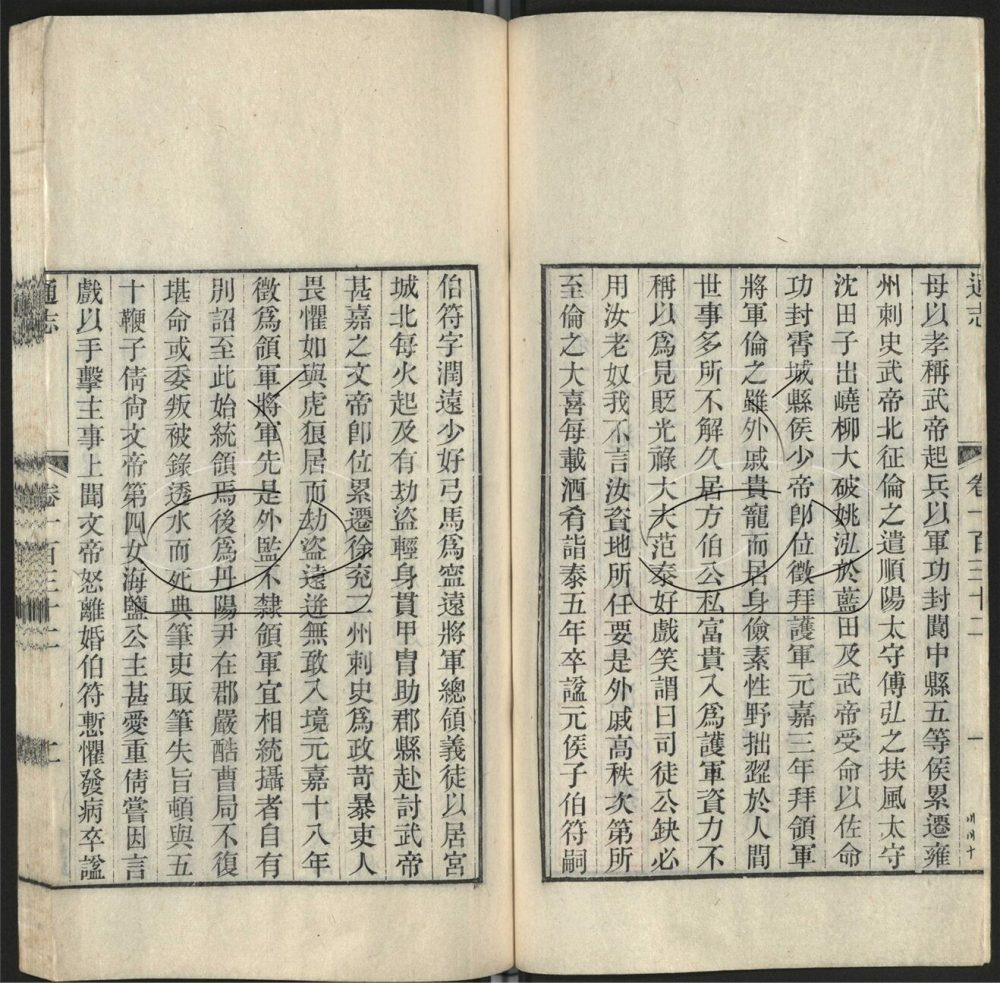 通志
卷一百三十二
一
母以孝稱武帝起兵以軍功封閬中縣五等侯累遷雍
州刺史武帝北征倫之遣順陽太守傅弘之扶風太守
沈田子出嶢柳大破姚泓於藍田及武帝受命以佐命
功封霄城縣侯少帝卽位徵拜護軍元嘉三年拜領軍
將軍倫之雖外戚貴寵而居身儉素性野拙澀於人間
世事多所不解久居方伯公私富貴入爲護軍資力不
稱以爲見貶光祿大夫范泰好戲笑謂曰司徒公缺必
用汝老奴我不言汝資地所任要是外戚高秩次第所
至倫之大喜每載酒肴詣泰五年卒諡元侯子伯符嗣
伯符字潤遠少好弓馬爲寍遠將軍總領義徒以居宮
城北每火起及有劫盜輕身貫甲胄助郡縣赴討武帝
甚嘉之文帝卽位累遷徐兗二州刺史爲政苛暴吏人
畏懼如與虎狼居而劫盜遠迸無敢入境元嘉十八年
徵爲領軍將軍先是外監不隸領軍宜相統攝者自有
別詔至此始統領焉後爲丹陽尹在郡嚴酷曹局不復
堪命或委叛被錄透水而死典筆吏取筆失旨頓與五
十鞭子倩尙文帝第四女海鹽公主甚愛重倩嘗因言
戲以手擊主事上聞文帝怒離婚伯符慙懼發病卒諡
通志
卷一百三十二